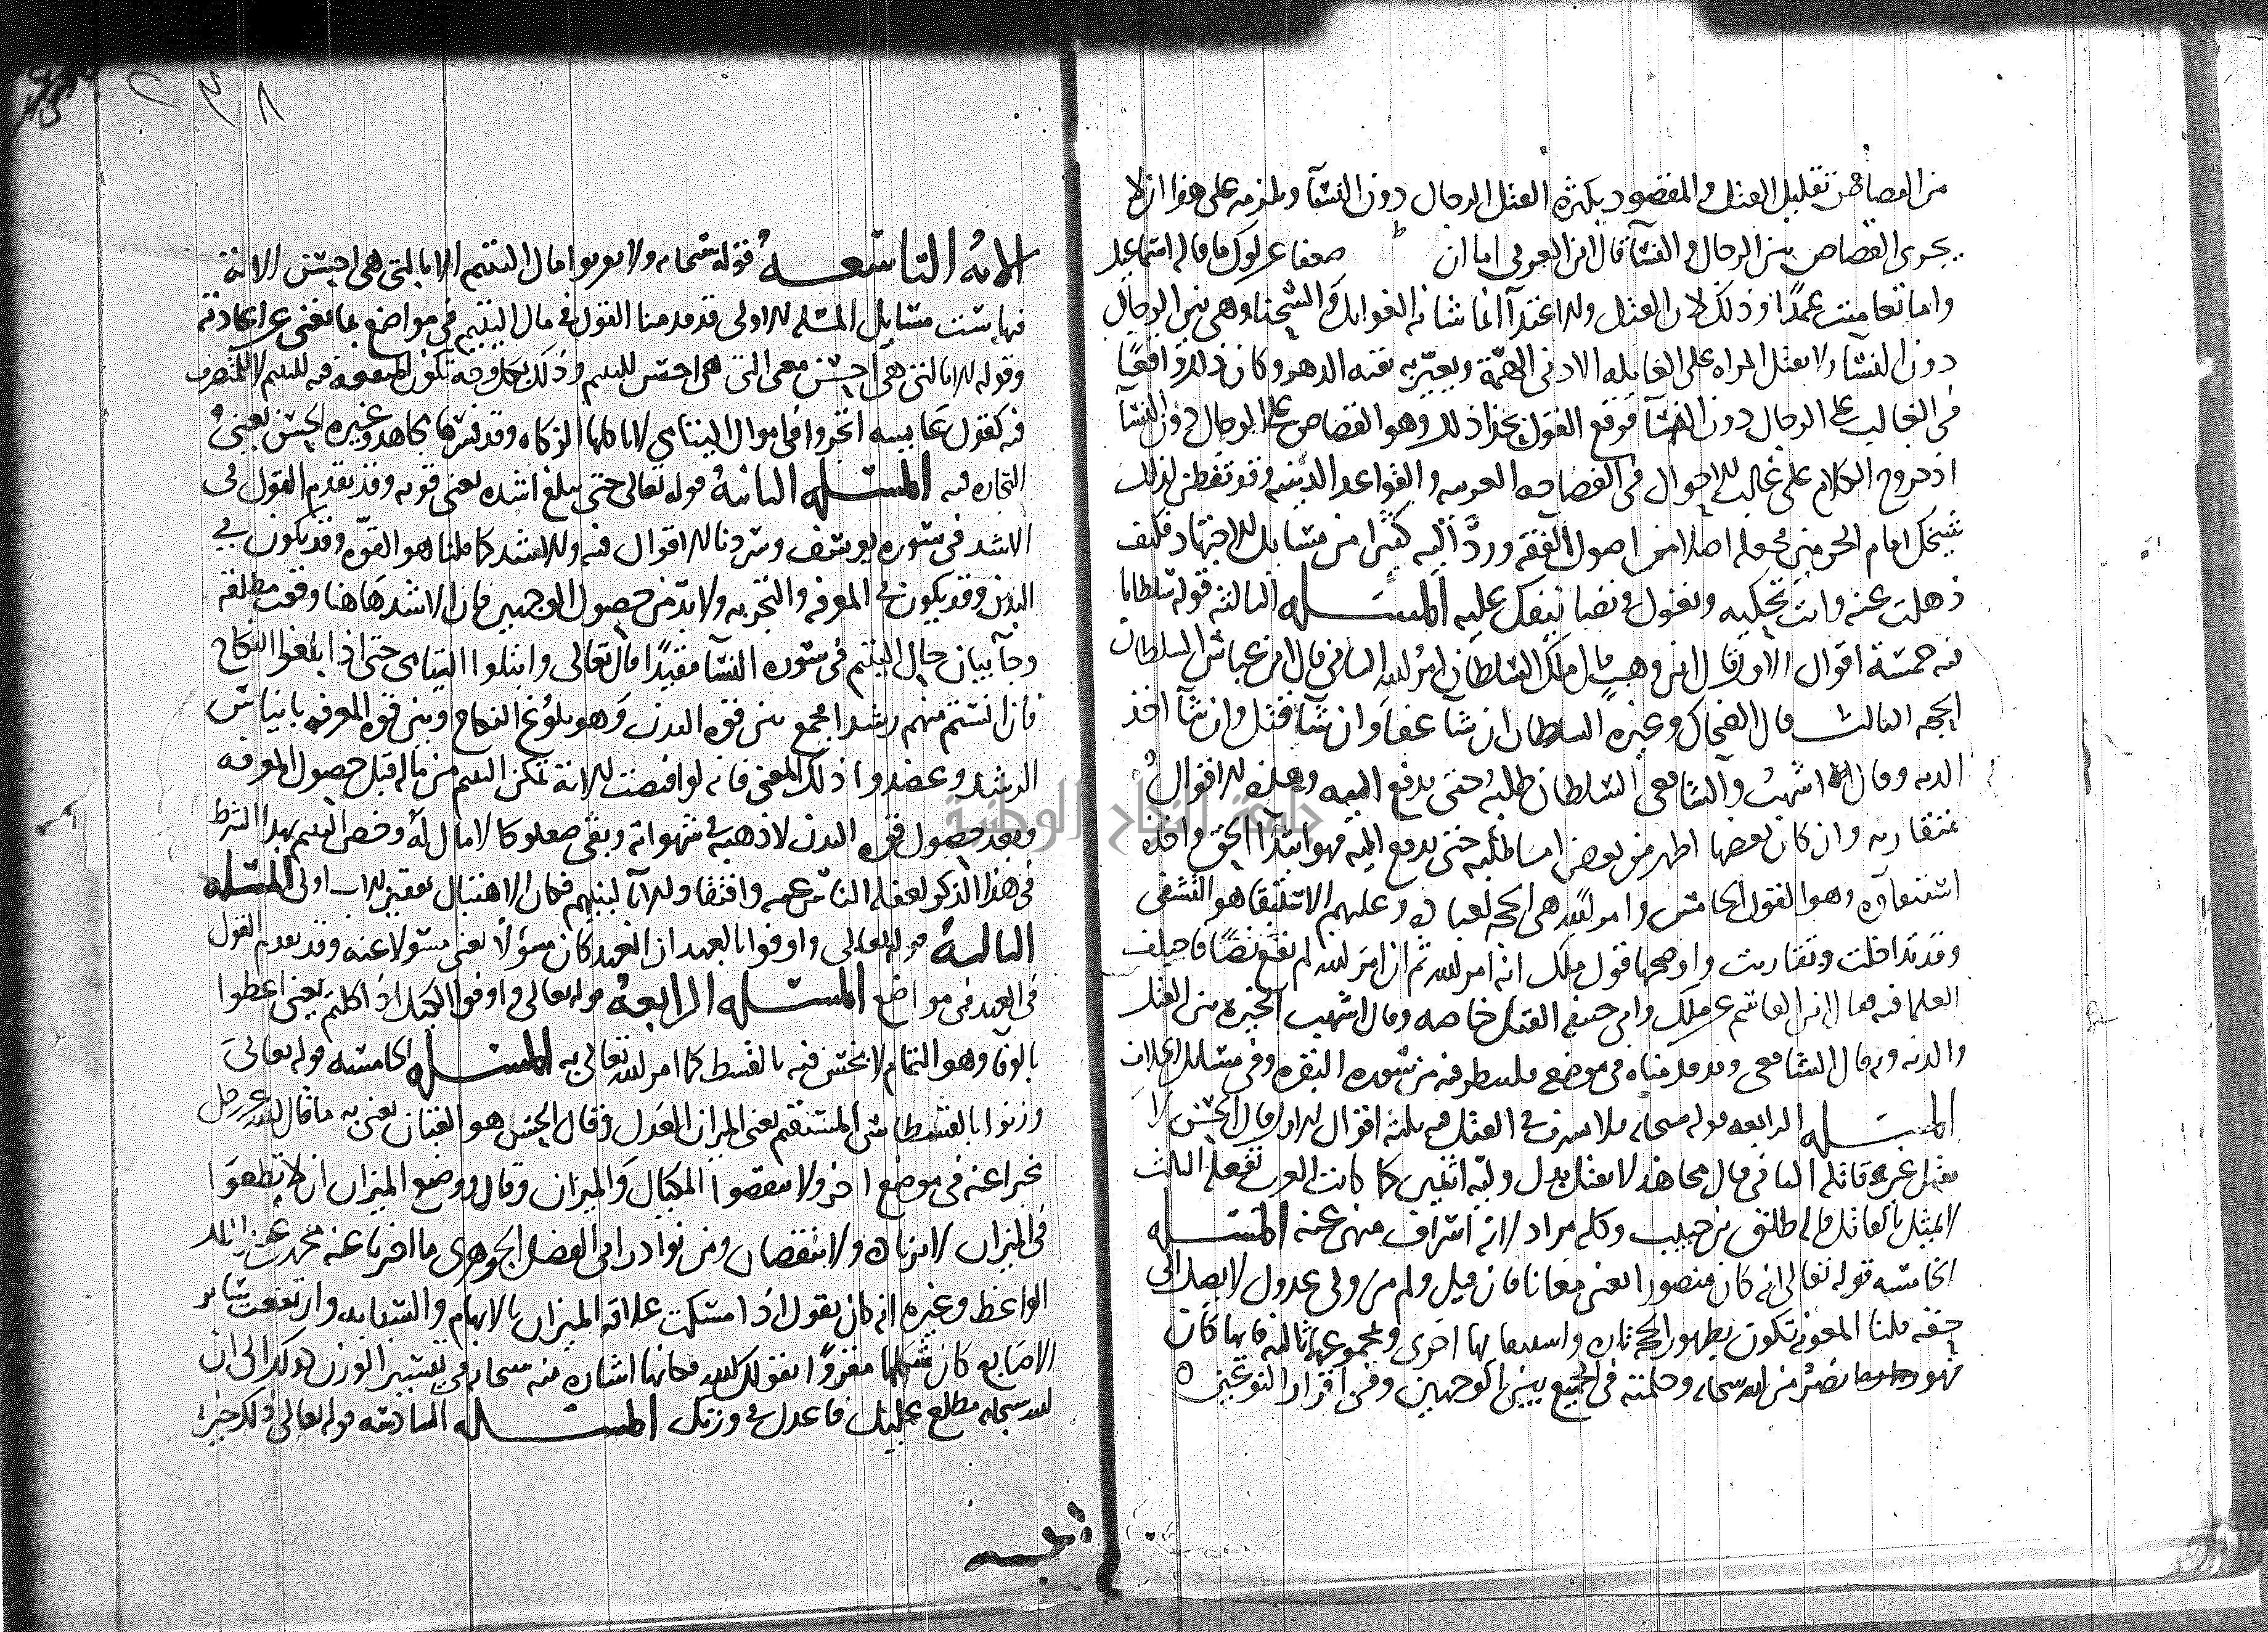 من القصاص تقليل القتل والمقصود بكثرة القتل الرجال دون النسآ ويلزمه على هذا ان لا
يجرى القصاص بين الرجال والنسآ قال ابن العربى اما ان ضعفا عن لوك ما قاله اسماعيل
واما تعامت عمدًا وذلك لان القتل والاعتدآ انما شانه الغوايل والشحنا وهى بين الرجال
دون النسآ ولا يقتل المراه على الغايله الا دنى الهمة ويعير به بقيه الدهر وكان ذلك واقعًا
فى الغالب على الرجال دون النسآ فوقع القول بجزا ذلك وهو القصاص على الرجال دون النسآ
اذ خروج الكلام على غالب الاحوال فى الفصاحه العربيه والقواعد الدينيه وقد تفطن لذلك
شيخك امام الحرمين فجعله اصلا من اصول الفقه وردّ اليه كثيرا من مسايل الاجتهاد فكيف
ذهلت عنه وانت تحكيه وتعول فى نصابنيفك عليه المسله الثالثه قوله سلطانا
فيه خمسة اقوال الاول قال ابن وهب قال ملك السلطان امر الله الثانى قال ابن عباس السلطان
الحجه الثالث قال الضحاك وغيره السلطان ان شآ عفا وان شآ قتل وان شآ اخذ
الديه وقال اشهب والشافعى السلطان طلبه حتى يدفع اليه وهذه الاقوال
متقاربه وان كان بعضها اظهر من بعض اما طلبه حتى يدفع اليه فهو ابتدآ الحق واخذه
استيفآوه وهو القول الخامس وامر الله هى الحجه لعباده وعليهم الاستيفا هو التشفى
وقد تداخلت وتقاربت واوضحها قول ملك انه امر الله ثم ان امر الله لم يقع نصًا فاختلف
العلما فيه فقال ابن القاسم عن ملك وابى حنيفه القتل خاصه وقال اشهب الخيره بين القتل
والديه وبه قال الشافعى وقد قدمناه فى موضعه فلينظر فيه من سوره البقره وفى مسايل الخلاف
المسله الرابعه قوله سبحانه فلا يسرف فى القتل فيه ثلثه اقوال الاول قال الحسن لا
يقتل غير قاتله الثانى قال مجاهد لا يقتل بدل وليه اثنين كما كانت العرب تفعله الثالث
لا يمثل بالقاتل قاله طلق بن حبيب وكله مراد لانه اسراف منهى عنه المسله
الخامسه قوله تعالى انه كان منصورا يعنى معانا فان قيل وكم من ولى مخذول لا يصل الى
حقه قلنا المعونه تكون بظهور الحجه تاره واستيفايها اخرى وبمجموعهما ثالثه فايها كان
فهو نصر من الله سبحانه وحكمته فى الجمع بين الوجهين وفى افراد النوعين
٢٣٨
الايه التاسعه قوله سبحانه ولا تقربوا مال اليتيم الا بالتى هى احسن الاية
فيها ست مسايل المسله الاولى قد قدمنا القول فى مال اليتيم فى مواضع بما يغنى عن اعادته
وقوله الا بالتى هى احسن معنى التى هى احسن لليتيم وذلك بكل وجه تكون المنفعه فيه لليتيم لا للمتصرف
فيه كقول عايشه اتجروا فى اموال اليتامى لا تاكلها الزكاه وقد فسرها مجاهد وغيره الحسن يعنى
التجاره فيه المسله الثانيه قوله تعالى حتى يبلغ اشده يعنى قوته وقد تقدم القول فى
الاشد فى سوره يوسف وسردنا الاقوال فيه والاشد كما قلنا هو القوّه وقد تكون فى
البدن وقد يكون فى المعرفه والتجربه ولابد من حصول الوجهين فان الاشد هاهنا وقعت مطلقه
وجآ بيان حال اليتيم فى سوره النسآ مقيدًا قال تعالى وابتلوا اليتامى حتى اذا بلغوا النكاح
فان انستم منهم رشدا فجمع بين قوه البدن وهو بلوغ النكاح وبين قوه المعرفه بايناس
الرشد وعضدوا ذلك المعنى فانه لو اقتضت الاية تمكن اليتيم من ماله قبل حصول المعرفه
وبعد حصول قوه البدن لاذهبه فى شهواته وبقى صعلوكا لا مال له وخص اليتيم بهذا الشرط
فى هذا الذكر لغفله الناس عنه وافتقاد الابآ لبنيهم فكان الاهتبال بفقيد الاب اولى المسله
الثالثه قوله تعالى واوفوا بالعهد ان العهد كان مسؤلًا يعنى مسولا عنه وقد تقدم القول
فى العهد فى مواضع المسله الرابعه قوله تعالى واوفوا الكيل اذا كلتم يعنى اعطوا
بالوفآ وهو التمام لا بخس فيه بالقسط كما امر الله تعالى به المسله الخامسه قوله تعالى
وزنوا بالقسطاس المستقيم يعنى الميزان العدل وقال الحسن هو القبان يعنى به ما قال الله عز وجل
مخبرا عنه فى موضع اخر ولا تنقصوا المكيال والميزان وقال ووضع الميزان ان لا تطغوا
فى الميزان لا بزياده ولا بنقصان ومن نوادر ابى الفضل الجوهرى ما اخبرنا عنه محمد بن عبد الملك
الواعظ وغيره انه كان يقول اذا امسكت علاقه الميزان بالابهام والسبابه وارتفعت ساير
الاصابع كان شكلها مقروًا بقولك الله فكانها اشاره منه سبحانه فى تيسير الوزن كذلك الى ان
الله سبحانه مطلع عليك فاعدل فى وزنك المسله السادسه قوله تعالى ذلك خير